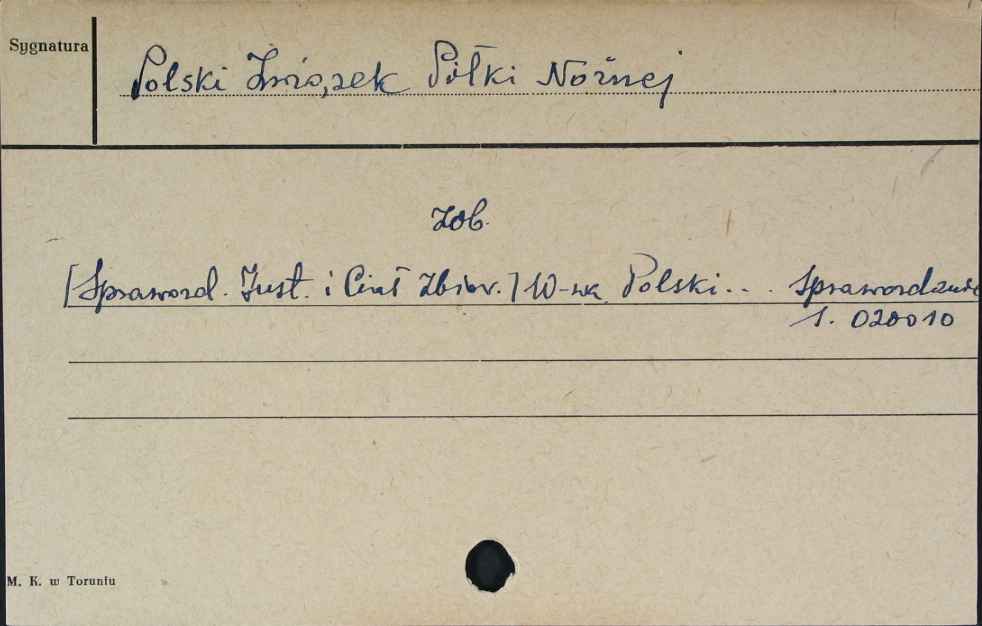 Sygnatura
Polski Związek Piłki Nożnej
Zob.
[Sprawozd. Inst. i Ciał Zbior.] W-wa Polski... Sprawozdanie
S. 020010
M. K. w Toruniu